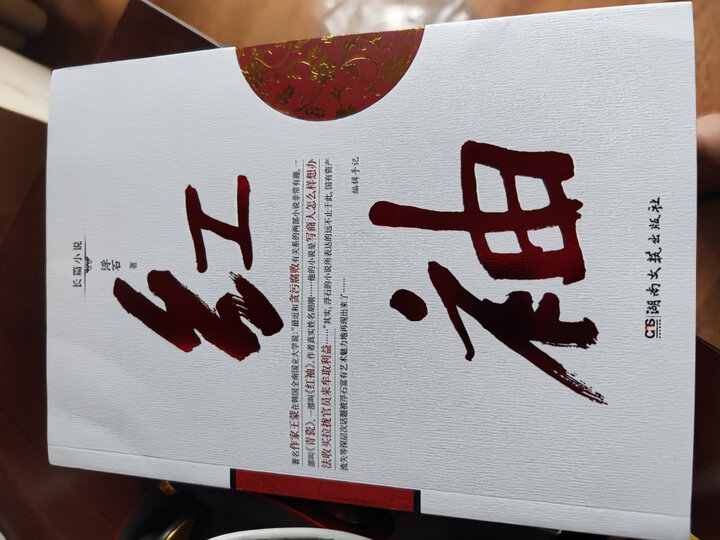 长篇小说
浮石 著
红
袖
著名作家王蒙在韩国全南国立大学说:“最近和贪污腐败有关系的两部小说非常有趣,一
部叫《青瓷》,一部叫《红袖》。作者真实姓名胡刚……他的小说是写商人怎么样想办
法收买拉拢官员来牟取利益……”其实,浮石的小说所表达的远不止于此,国有资产
流失等深层次话题被浮石富有艺术魅力地再现出来了……
编辑手记
CTS 湖南文艺出版社